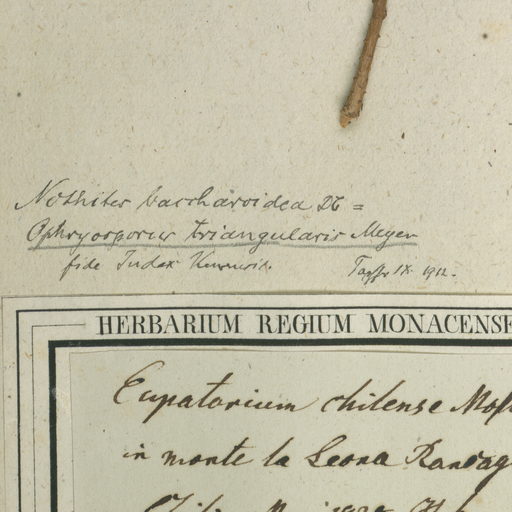 Nothites baccharoidea DC =
Ophryosporus triangularis Meyen
fide Index Kewensis. IX. 1912.
HERBARIUM REGIUM MONACENSE
Eupatorium chilense
in monte la Leona